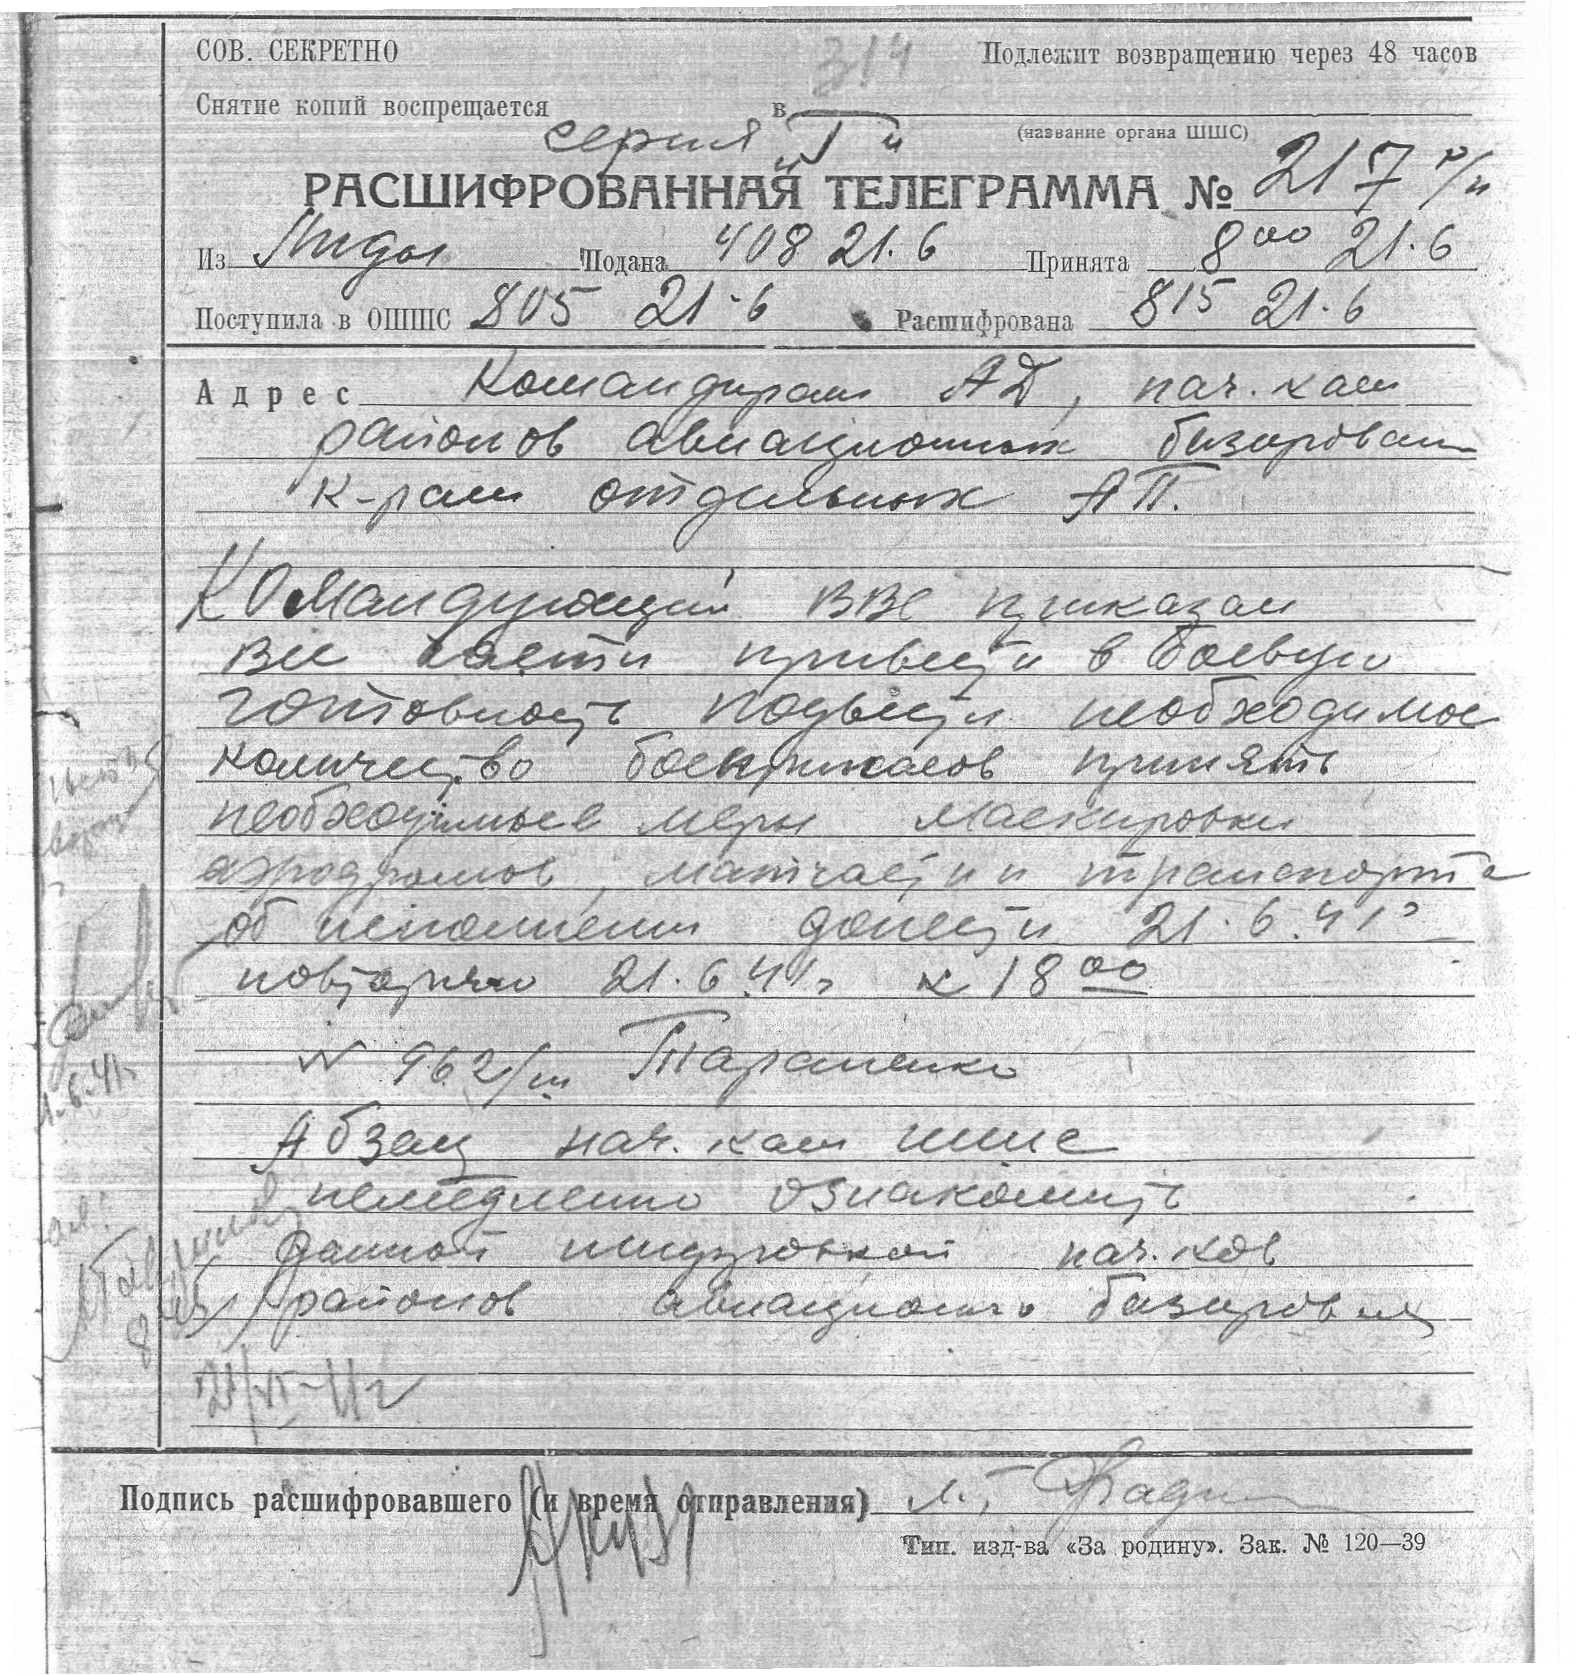 314
СОВ. СЕКРЕТНО
Подлежит возвращению через 48 часов
Снятие копий воспрещается
в
(название органа ШШС)
серия "Г"
РАСШИФРОВАННАЯ ТЕЛЕГРАММА № 217
Из Лиды Подана 408 21.6 Принята 8 00 21.6
Поступила в ОШШС 805 21.6 Расшифрована 815 21.6
Адрес Командирам АД, нач.кам
районов авиационных базирован
к-рам отдельных АП.
Командующий ВВС приказал
все части привести в боевую
готовность подвести необходимое
количество боеприпасов принять
необходимые меры маскировки
аэродромов, матчасти и транспорта
об исполнении донести 21.6.41г
повторяю 21.6.41г к 18 00
N 962/ш Тараненко
Абзац нач.кам шшс
немедленно ознакомить
данной шифровкой нач.ков
районов авиационного базиров
21/VI-41г
Подпись расшифровавшего (и время отправления)
Тип. изд-ва «За родину». Зак. № 120—39